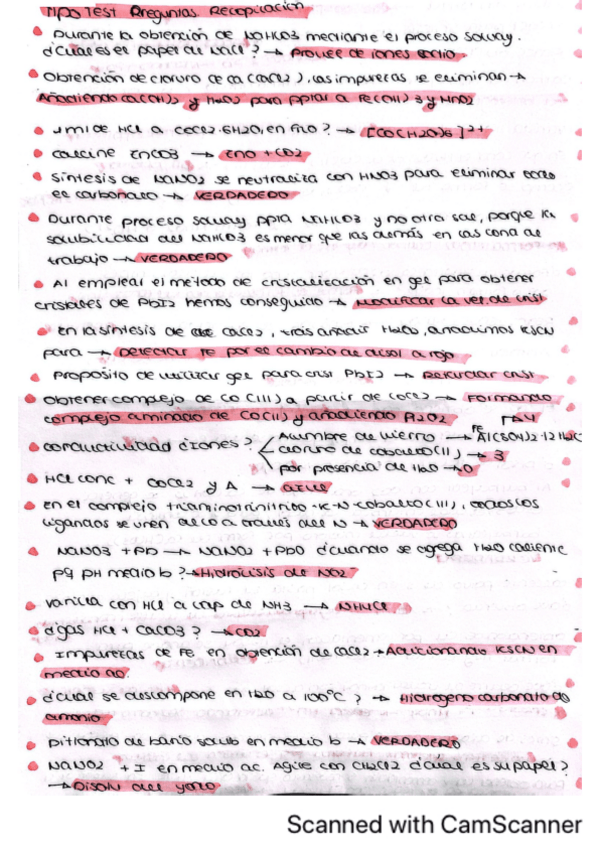 TIPO TEST Preguntas Recopilación
Durante la obtención de NaHCO3 mediante el proceso solvay.
d'cual es el papel de NaCl? → Provee de iones sodio
Obtención de cloruro de ca (CaCl2), las impurezas se eliminan →
Añadiendo Ca(OH)2 y H2O2 para pptar a Fe(OH)3 y MnO2
1 ml de HCl a CoCl2·6H2O, en H2O? → [Co(H2O)6]2+
calcine ZnCO3 → ZnO + CO2
Síntesis de NaNO2 se neutraliza con HNO3 para eliminar
el carbonato → VERDADERO
Durante proceso solvay ppta NaHCO3 y no otra sal, porque la
solubilidad del NaHCO3 es menor que las demás en las cond de
trabajo → VERDADERO
Al emplear el método de cristalización en gel para obtener
cristales de PbI2 hemos conseguido → Modificar la vel. de crist
En la síntesis de CaCl2, tras añadir H2O2, añadimos KSCN
para → Detectar Fe por el cambio de disol a rojo
Propósito de utilizar gel para crist PbI2 → Ralentizar crist
Obtener complejo de Co(III) a partir de CoCl2 → Formando
complejo aminado de Co(II) y añadiendo H2O2
conductividad d'iones? Alumbre de hierro → Al(SO4)2·12H2O
Fe
→ 4
cloruro de cobalto(II) → 3
por presencia de H2O → 0
HCl conc + CoCl2 y Δ → azul
en el complejo triaminotrinitrito-K-N-cobalto(III), todos los
ligandos se unen al Co a través del N → VERDADERO
NaNO3 + Pb → NaNO2 + PbO d'cuando se agrega H2O caliente
pq pH medio b? → Hidrólisis de NO2-
varilla con HCl a vap de NH3 → NH4Cl
d'gas HCl + CaCO3? → CO2
Impurezas de Fe en obtención de CaCl2 → Adicionando KSCN en
medio ac.
d'cual se descompone en H2O a 100ºC? → Hidrogeno carbonato de
amonio
Ditionato de bario solub en medio b → VERDADERO
NaNO2 + I en medio ac. Agite con CH2Cl2 d'cual es su papel?
→ Disolv del yodo
Scanned with CamScanner